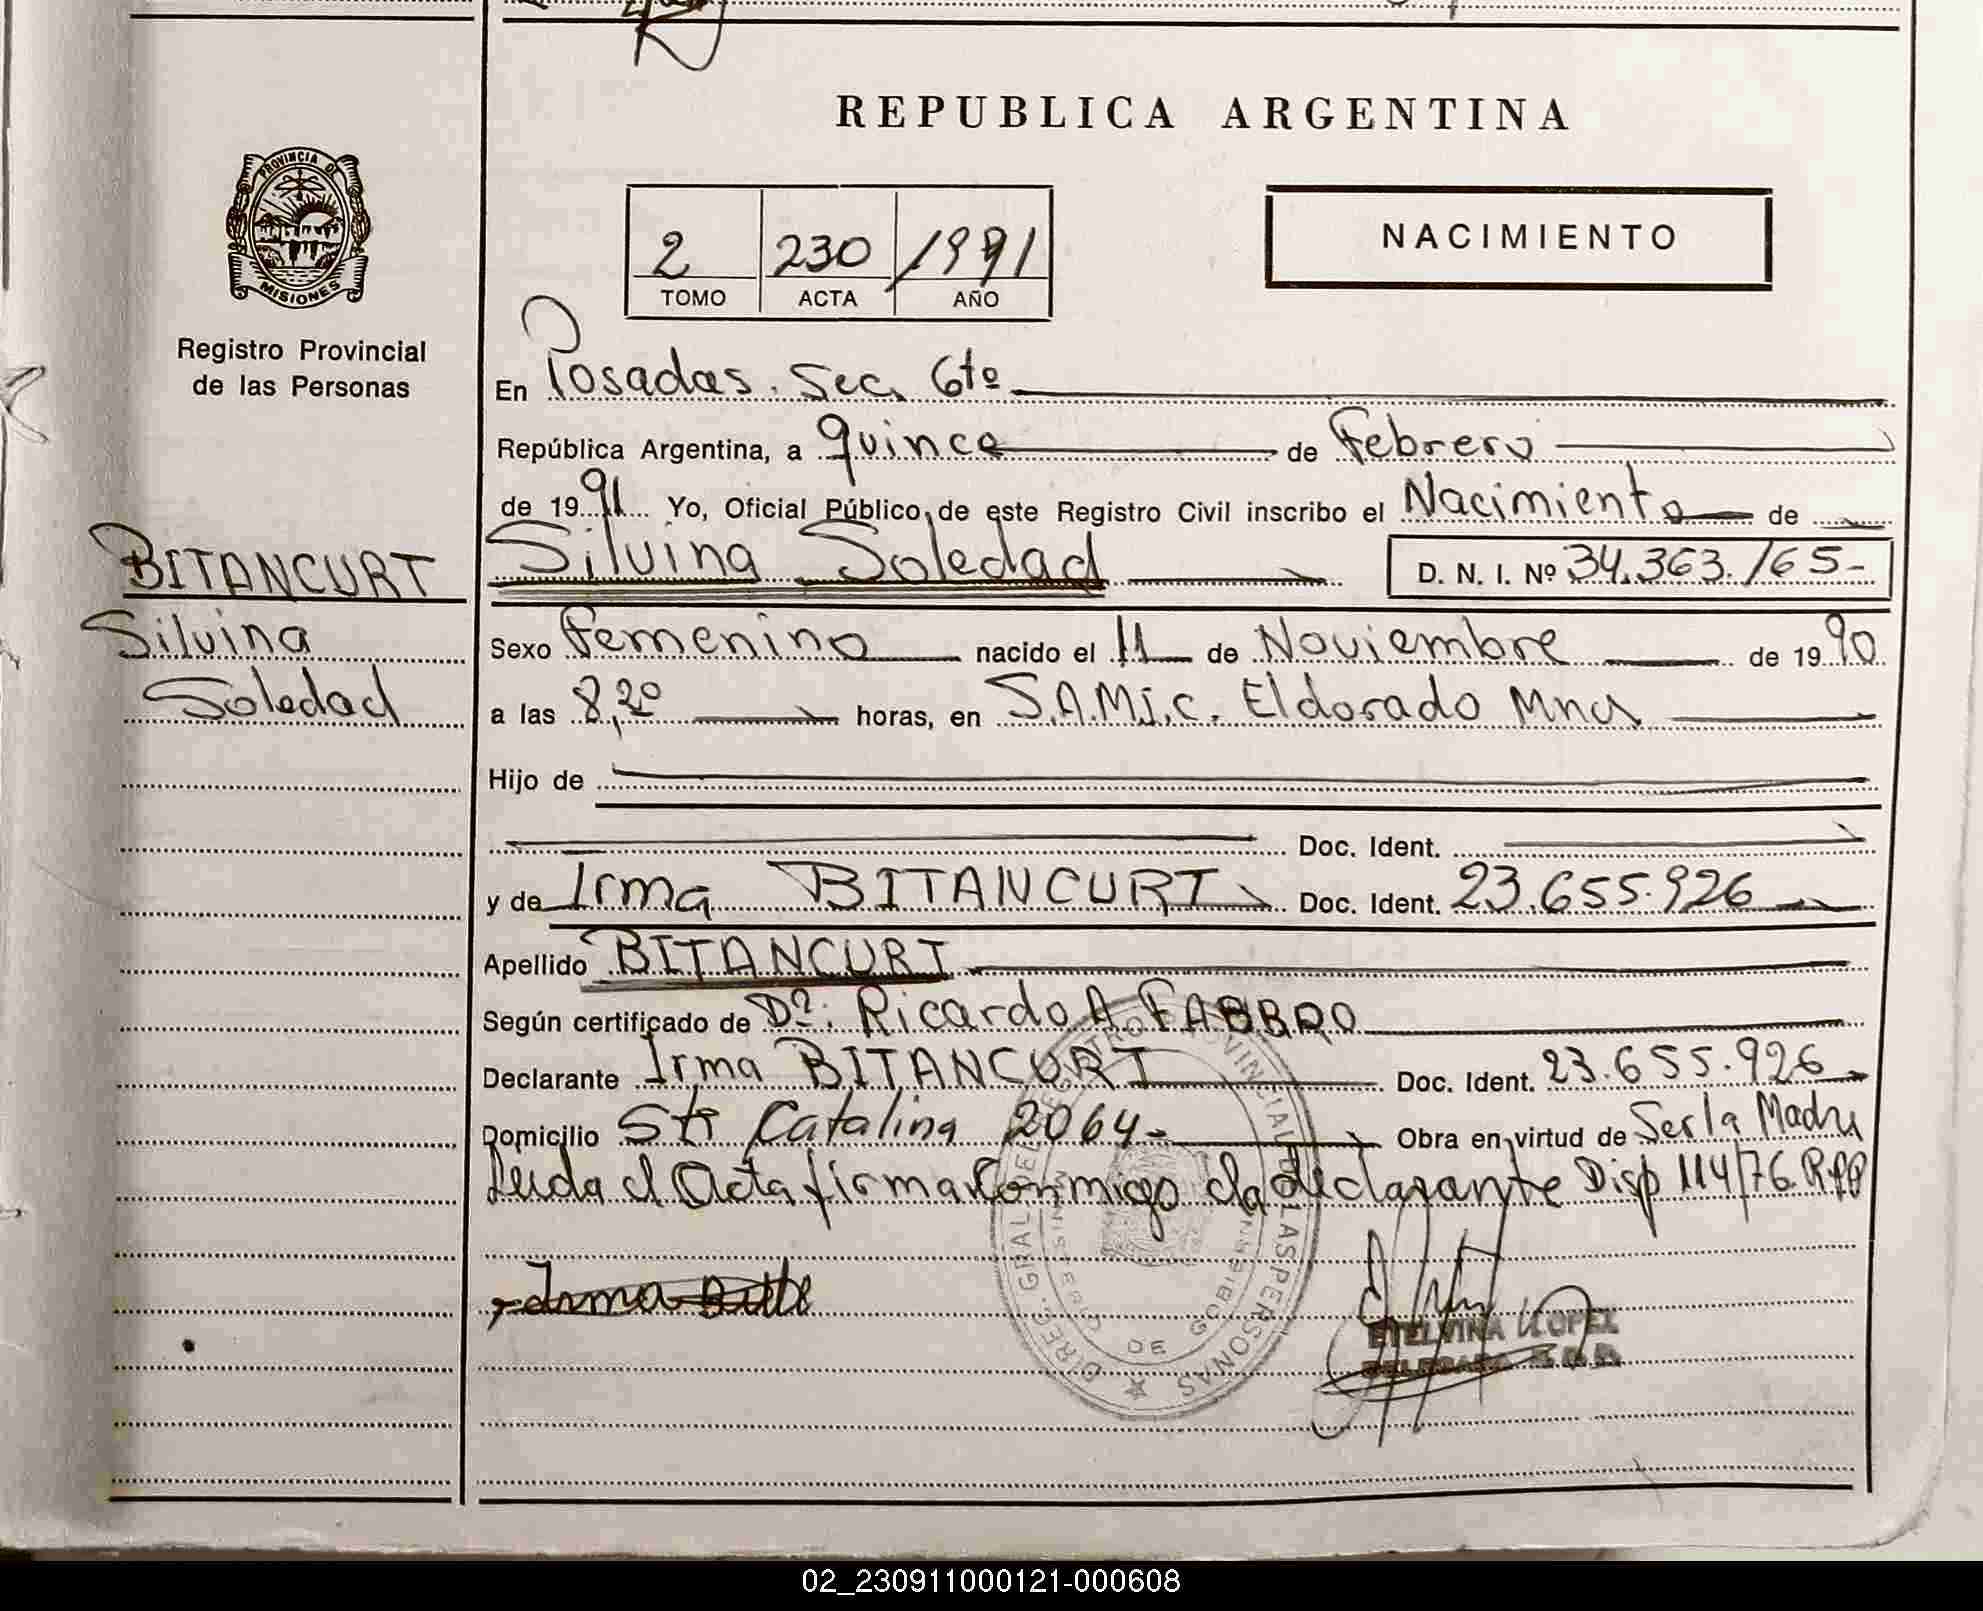 REPUBLICA ARGENTINA
PROVINCIA DE
MISIONES
Registro Provincial
de las Personas
2 230 1991
TOMO ACTA AÑO
NACIMIENTO
En Posadas. Sec. 6to
República Argentina, a quince de Febrero
de 1991 Yo, Oficial Público, de este Registro Civil inscribo el Nacimiento de
Silvina Soledad D. N. I. Nº 34.363.165-
BITANCURT
Silvina
Soledad
Sexo Femenino nacido el 11 de Noviembre de 1990
a las 8,20 horas, en S.A.M.I.C. Eldorado Mnes
Hijo de
Doc. Ident.
y de Irma BITANCURT Doc. Ident. 23.655.926
Apellido BITANCURT
Según certificado de Dr: Ricardo A. FABBRO
Declarante Irma BITANCURT Doc. Ident. 23.655.926
Domicilio Sta Catalina 2064- Obra en virtud de Ser la Madre
Leida el Acta firma Conmigo la declarante Disp 114/76 R.P.P
Irma
DIREC. GRAL DEL REGISTRO PROVINCIAL DE LAS PERSONAS
DE GOBIERNO
ETELVINA LOPEZ
02_230911000121-000608